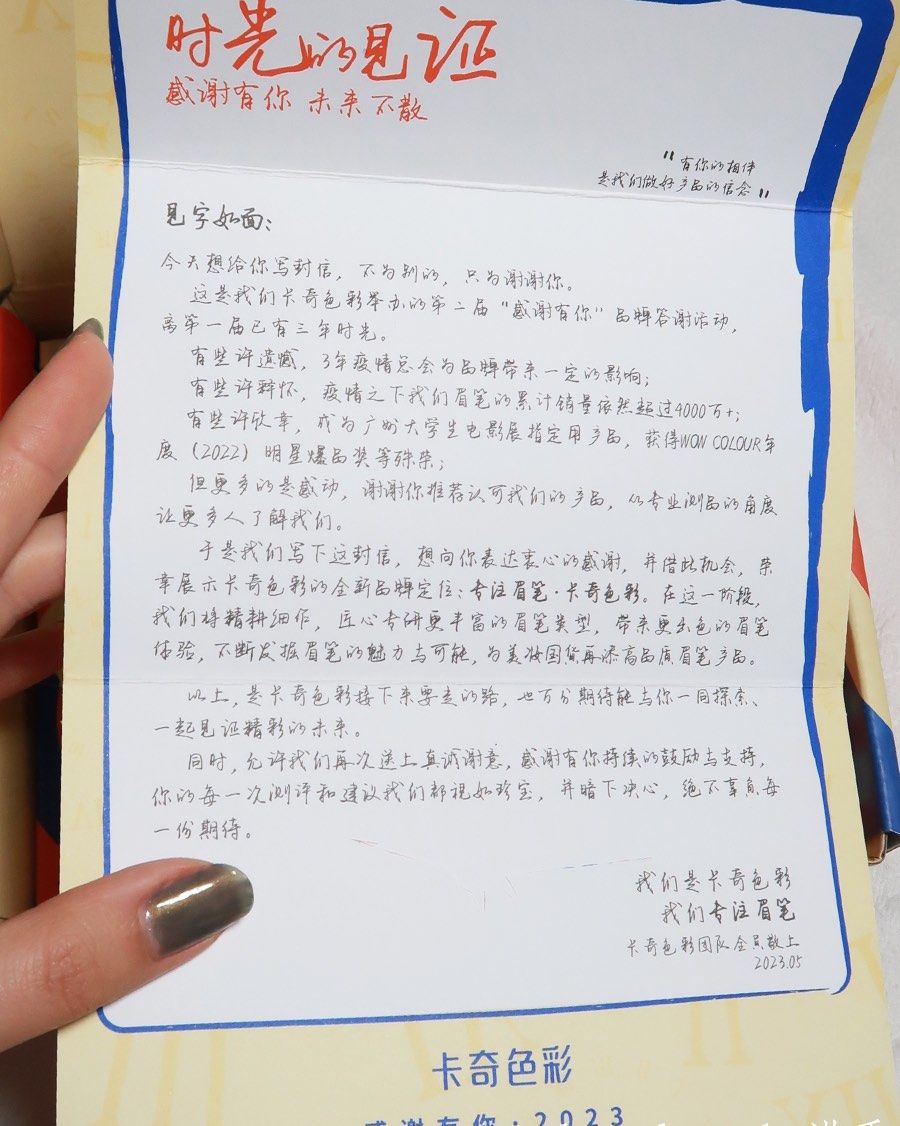 时光的见证
感谢有你 未来不散
"有你的相伴
是我们做好产品的信念"
见字如面：
今天想给你写封信，不为别的，只为谢谢你。
这是我们卡奇色彩举办的第二届“感谢有你”品牌答谢活动，
离第一届已有三年时光。
有些许遗憾，3年疫情总会为品牌带来一定的影响；
有些许释怀，疫情之下我们眉笔的累计销量依然超过4000万+；
有些许欣幸，成为广州大学生电影展指定用产品，获得WON COLOUR年
度（2022）明星爆品奖等殊荣；
但更多的是感动，谢谢你推荐认可我们的产品，从专业测品的角度
让更多人了解我们。
于是我们写下这封信，想向你表达衷心的感谢，并借此机会，荣
幸展示卡奇色彩的全新品牌定位：专注眉笔·卡奇色彩。在这一阶段，
我们将精耕细作，匠心专研更丰富的眉笔类型，带来更出色的眉笔
体验，不断发掘眉笔的魅力与可能，为美妆国货再添高品质眉笔产品。
以上，是卡奇色彩接下来要走的路，也万分期待能与你一同探索、
一起见证精彩的未来。
同时，允许我们再次送上真诚谢意，感谢有你持续的鼓励与支持，
你的每一次测评和建议我们都视如珍宝，并暗下决心，绝不辜负每
一份期待。
我们是卡奇色彩
我们专注眉笔
卡奇色彩团队全员敬上
2023.05
卡奇色彩
感谢有你：2023